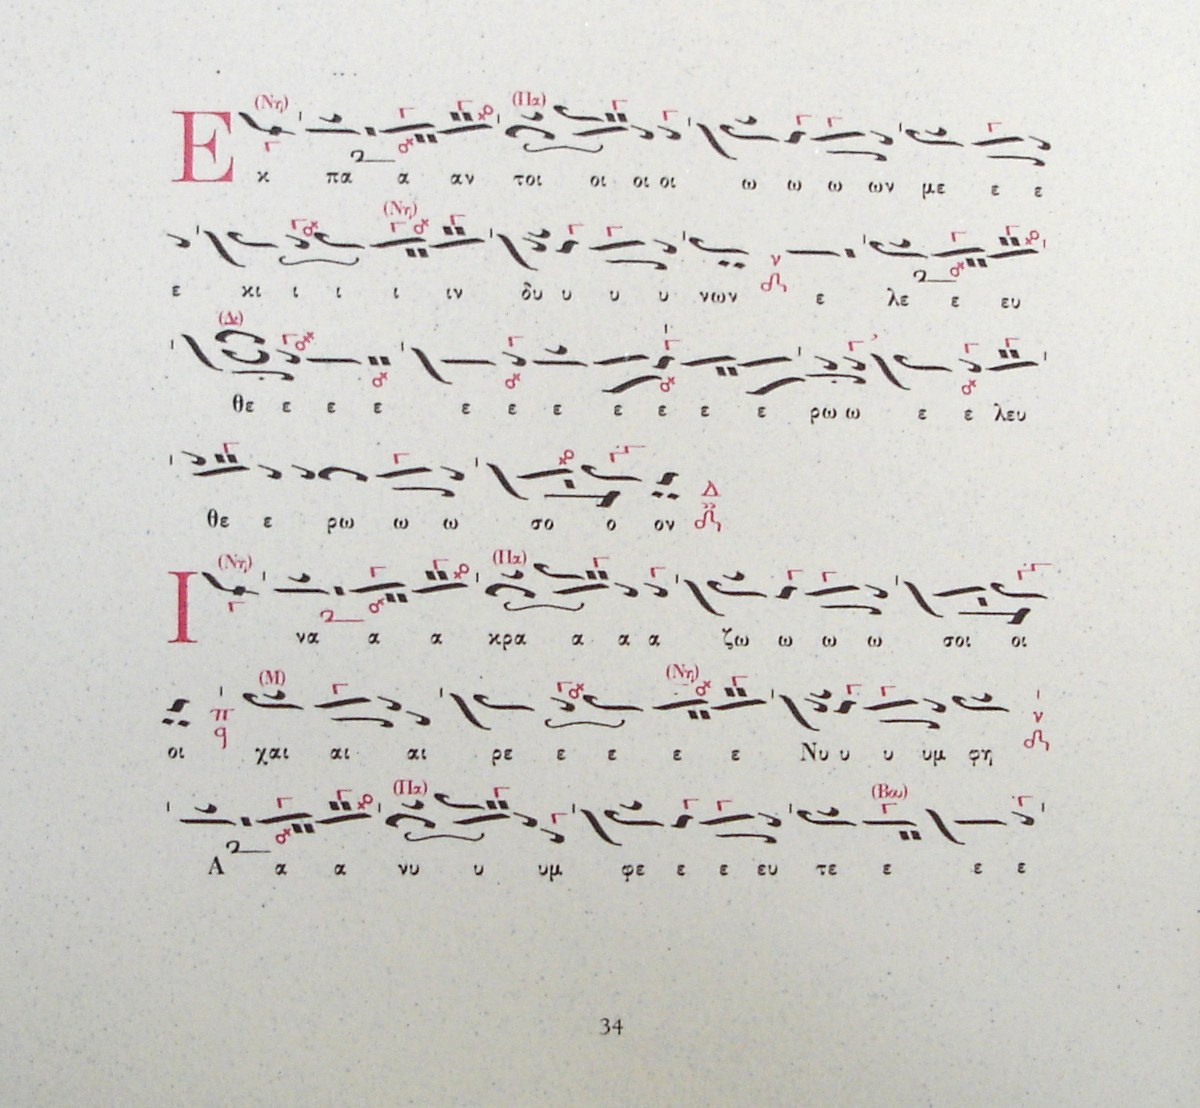 (Νη) (Πα)
Ε κ πα α αν τοι οι οι οι ω ω ω ων με ε ε
(Νη)
ε κι ι ι ι ιν δυ υ υ υ νων ν ε λε ε ευ
(Δι)
θε ε ε ε ε ε ε ε ε ε ε ρω ω ε ε λευ
θε ε ρω ω ω σο ο ον Δ
(Νη) (Πα)
Ι να α α κρα α α α ζω ω ω ω σοι οι
(Μ) (Νη)
οι π q χαι αι αι ρε ε ε ε ε Νυ υ υ υμ φη ν
(Πα) (Βου)
Α α α νυ υ υμ φε ε ε ευ τε ε ε ε
34